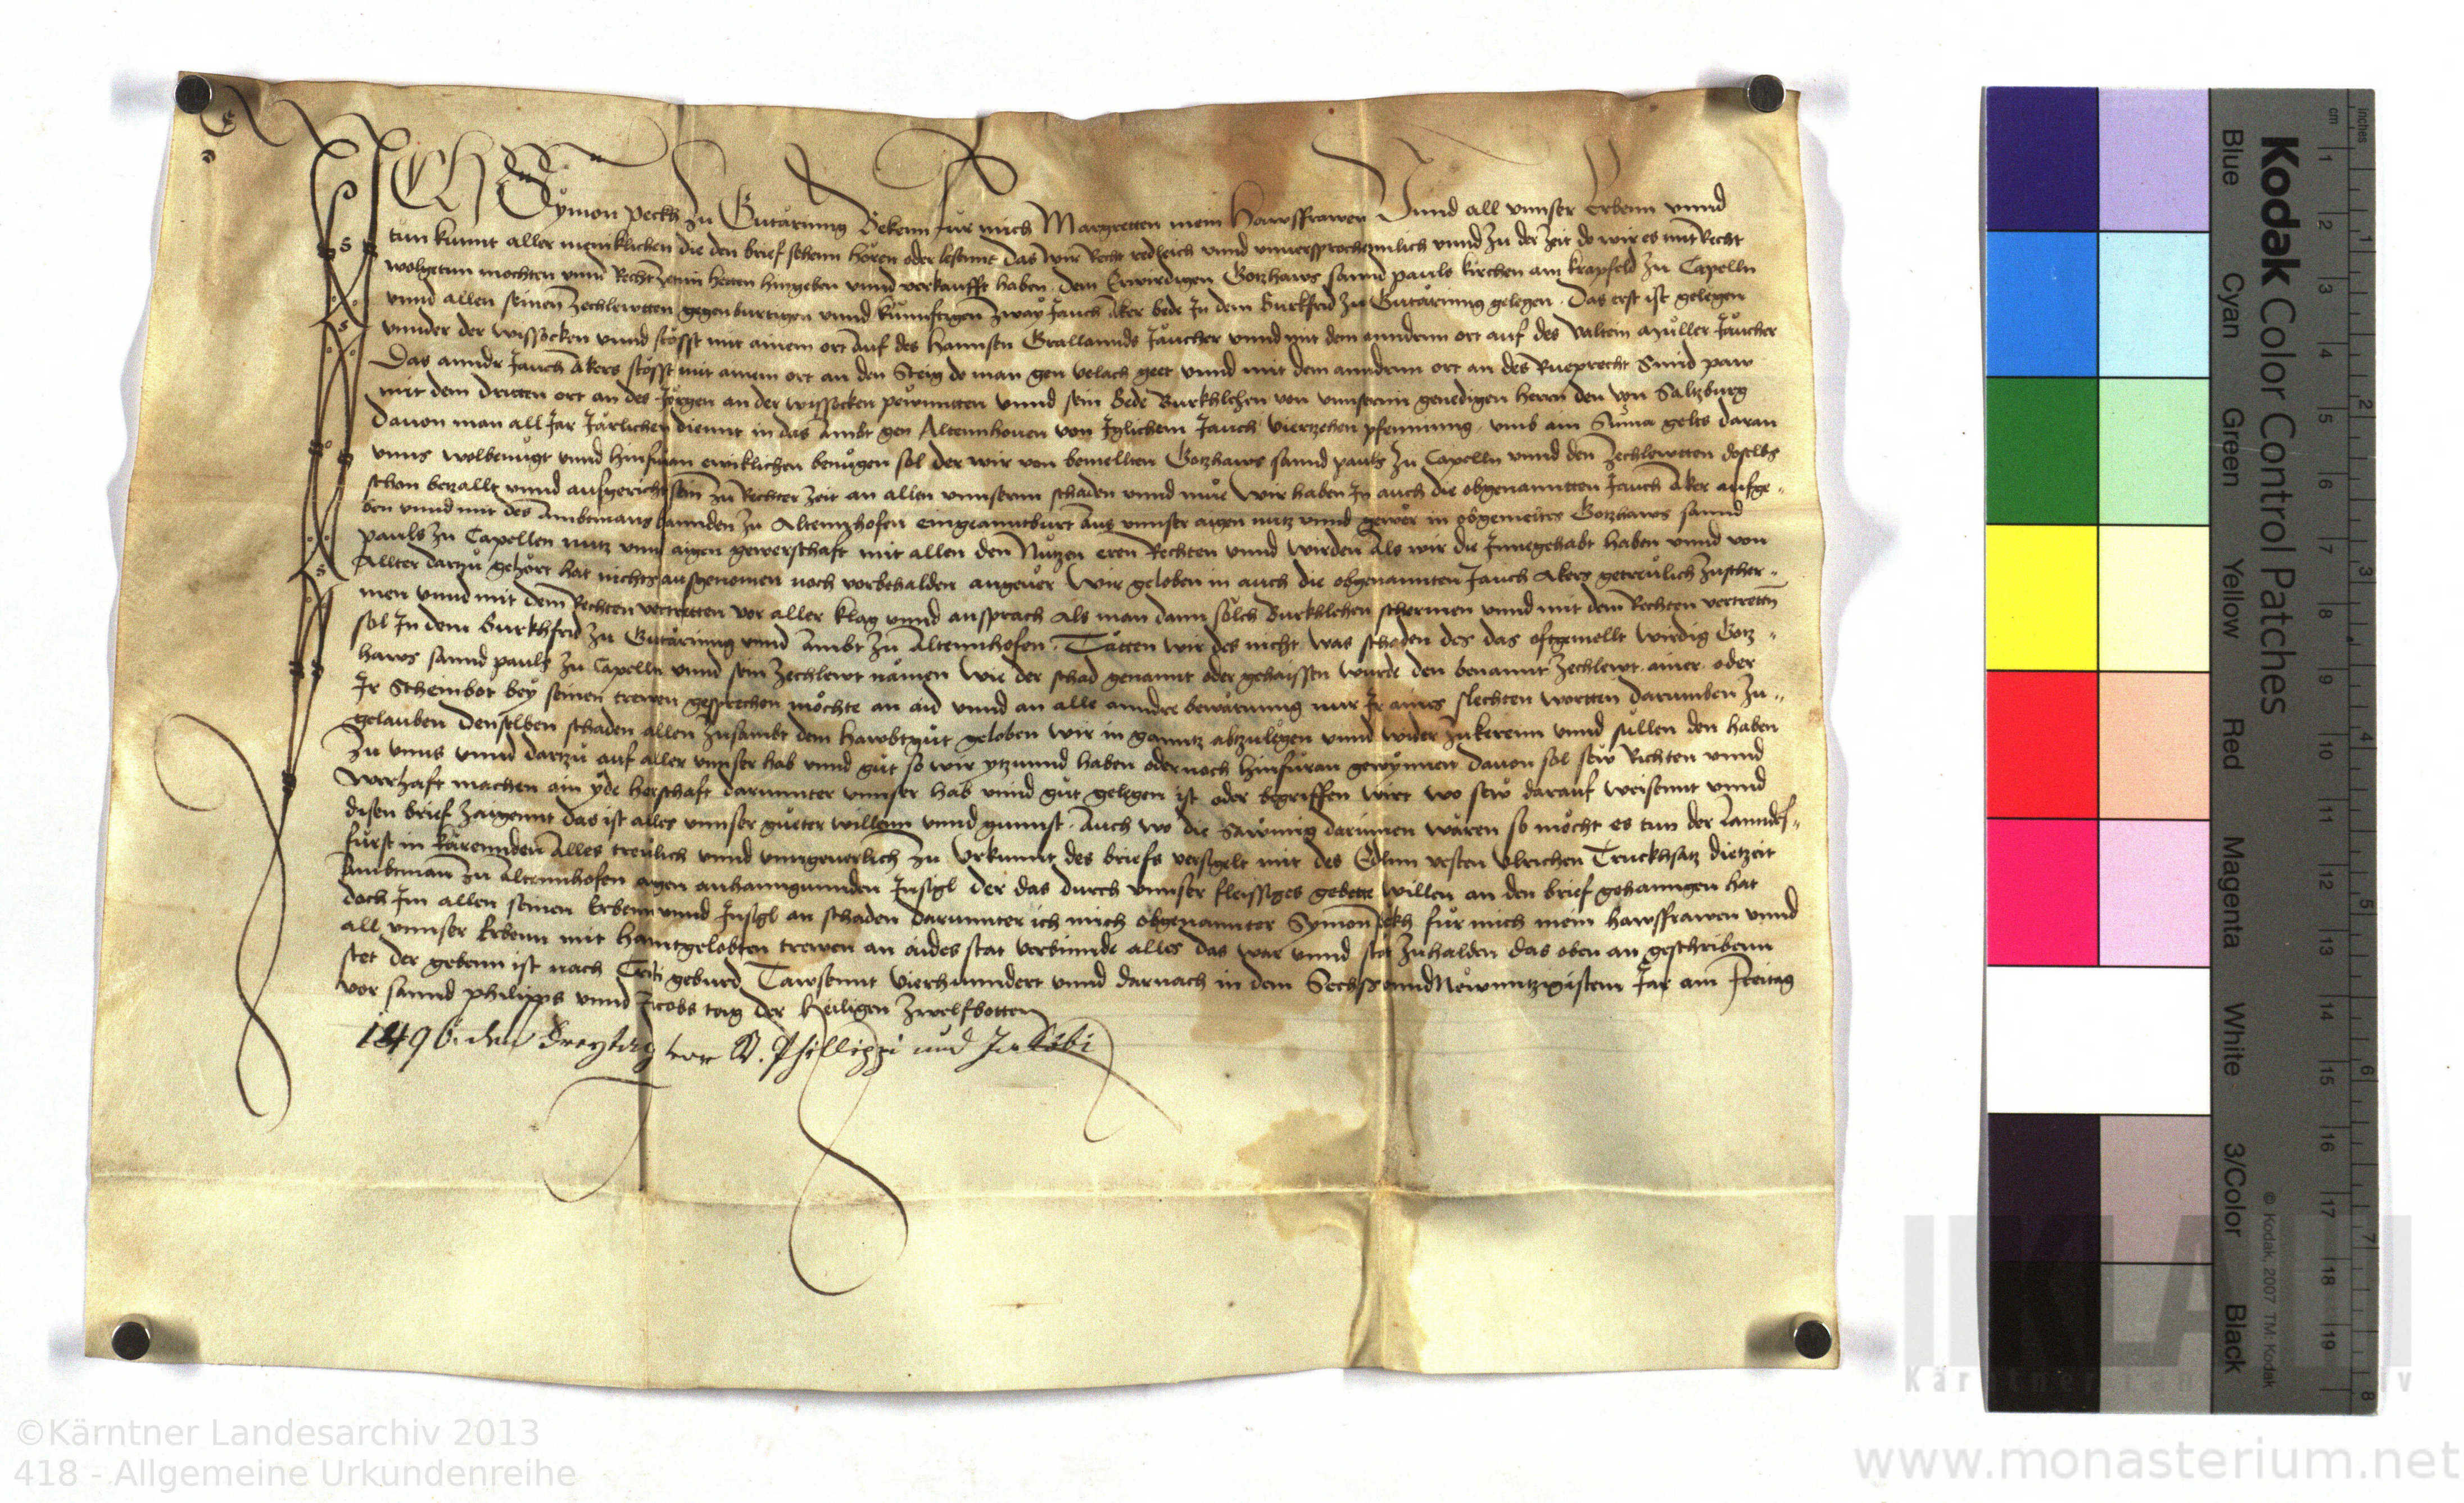 ICH Symon Peckh zu Gutaring Bekenn fur mich Margretten mein hawsffrawen Vnnd all vnnser Erbenn vnnd
tun kunnt aller meniklichen die den brief sehenn hören oder lesennt das wir Recht redleich vnnd vnuersprochennlich vnnd zu der Zeit do wir es mit Recht
wolgetun mochten vnnd hetten hingeben vnnd verkaufft haben dem Erwirdigen Gotzhaws sannd pauls kirchen am krapfeld zu Capelln
vnnd allen seinen Zechlewtten gegenburtigen vnnd künnftigen zway Jauch Aker bede In dem Burkfrid zu Gutaring gelegen. Das erst ist gelegen
vnnder der wissocken vnnd stösst mit ainem ort Auf des Hannsen Grallannds Jaucher vnnd mit dem anndrnn ort auf des Valtein Müller Jaucher
Das anndr Jauch Akers stösst mit ainem ort an den Steig do man gen velach geet vnnd mit dem anndrnn ort an des Rueprecht Smid paw
mit dem dritten ort an des Jörgen an der wissocken pewntten vnnd sein Bede Burkhlehen von vnnserm genedigen herrn den von Saltzburg
dauon man all Jar Järlichen diennt in das Ambt gen Altennhouen von Iglichem Jauch Viertzehen pfenning. vmb ain Suma gelts daran
vnns wolbenügt vnnd hinfüran ewiklichen benügen sol der wir von bemellten Gotzhaws sannd pauls zu Capelln vnnd den Zechlewtten doselbs
schon betzallt vnnd ausgericht sein zu Rechter Zeit an allen vnnsernn schaden vnnd müe wir haben In auch die obgenanntten Jauch Aker aufge-
ben vnnd mit des Ambtmans hannden zu Altennhofen eingeanntburt Aus vnnser aigen nutz vnnd gewer in obgemeltes Gotzhaws sannd
pauls zu Capellen nutz vnnd aigen gewerschaft mit allen den Nutzen eren Rechten vnnd wirden Als wir die Innegehabt haben vnnd von
Allter dartzu gehört hat nichts ausgenomen noch vorbehalden angeuer Wir geloben in auch die obgenannten Jauch Akers getreulich zuscher-
men vnnd mit dem Rechten vertretten vor aller klag vnnd ansprach Als man dann sölch Burkhlehen schermen vnnd mit dem Rechten vertrettn
sol In dem Burkhfrid zu Gutaring vnnd Ambt zu Altennhofen. Tätten wir des nicht was schaden des das oftgemellt wirdig Gotz-
haws sannd pauls zu Capelln vnnd sein Zechlewt nämen wie der schad genannt oder gehaissen wurde den benannt Zechlewt ainer oder
Ir Scheinbot bey seinen trewen gesprechen möchte an aid vnnd an alle anndre bewärung nur Ir aines slechten wortten darumben zu-
gelauben denselben schaden allen zusambt dem hawbtgut geloben wir in ganntz abtzulegen vnnd wider zukerenn vnnd sullen den haben
zu vnns vnnd dartzu auf aller vnnser hab vnnd gut so wir ytzunnd haben oder noch hinfuran gewynnen dauon sol sew Richten vnnd
Werhaft machen ain yde herschaft darunnter vnnser hab vnnd gut gelegen ist oder begriffen wirt wo sew darauf weisennt vnnd
disen brief zaigennt das ist alles vnnser gueter willenn vnnd gunnst. Auch wo die Sawmig darinnen wären so möcht es tun der Lanndes-
fürst in Kärennden Alles treulich vnnd vnngeuerlich Zu Vrkunnt des briefs versigelt mit des Edlnn vesten Vlreichen Truckhsätz dietzeit
Ambtman zu Altennhofen aigen anhanngunnden Insigl der das durch vnnser fleissiges gebette willen an den brief gehanngen hat
doch Im allen seinen Erbenn vnnd Insigl an schaden darunnter ich mich obgenannter Symon pekh für mich mein hawsfrawen vnnd
all vnnser Erbenn mit hanntgelobten trewen an aides stat verbinnde alles das war vnnd stet zuhalden das oben an geschribenn
stet der gebenn ist nach Cristi geburd Tawsennt Vierhunndert vnnd darnach in dem Sechssunndnewntzigistem Jar am Freitag
vor sannd philipps vnnd Jacobs tag der Heiligen Zwelfbotten
1496. den Freytag vor St. Phillippi und Jacobi
Kodak Color Control Patches
Blue Cyan Green Yellow Red Magenta White 3/Color Black
© Kodak, 2007 TM: Kodak
inches 1 2 3 4 5 6 7 8
cm 1 2 3 4 5 6 7 8 9 10 11 12 13 14 15 16 17 18 19
©Kärntner Landesarchiv 2013
418 - Allgemeine Urkundenreihe
www.monasterium.net